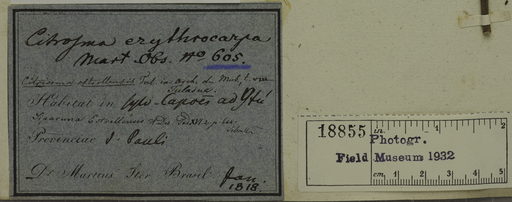 Citrosma erythrocarpa
Mart. Obs. No 605.
Citrosma
Habitat in sylv. Capoës ad Ytú
Siparuna
Provinciae S. Pauli
Dr. Martius Iter Brasil. Jan.
1818.
18855
Photogr.
Field Museum 1932
in. 1 2
cm. 1 2 3 4 5